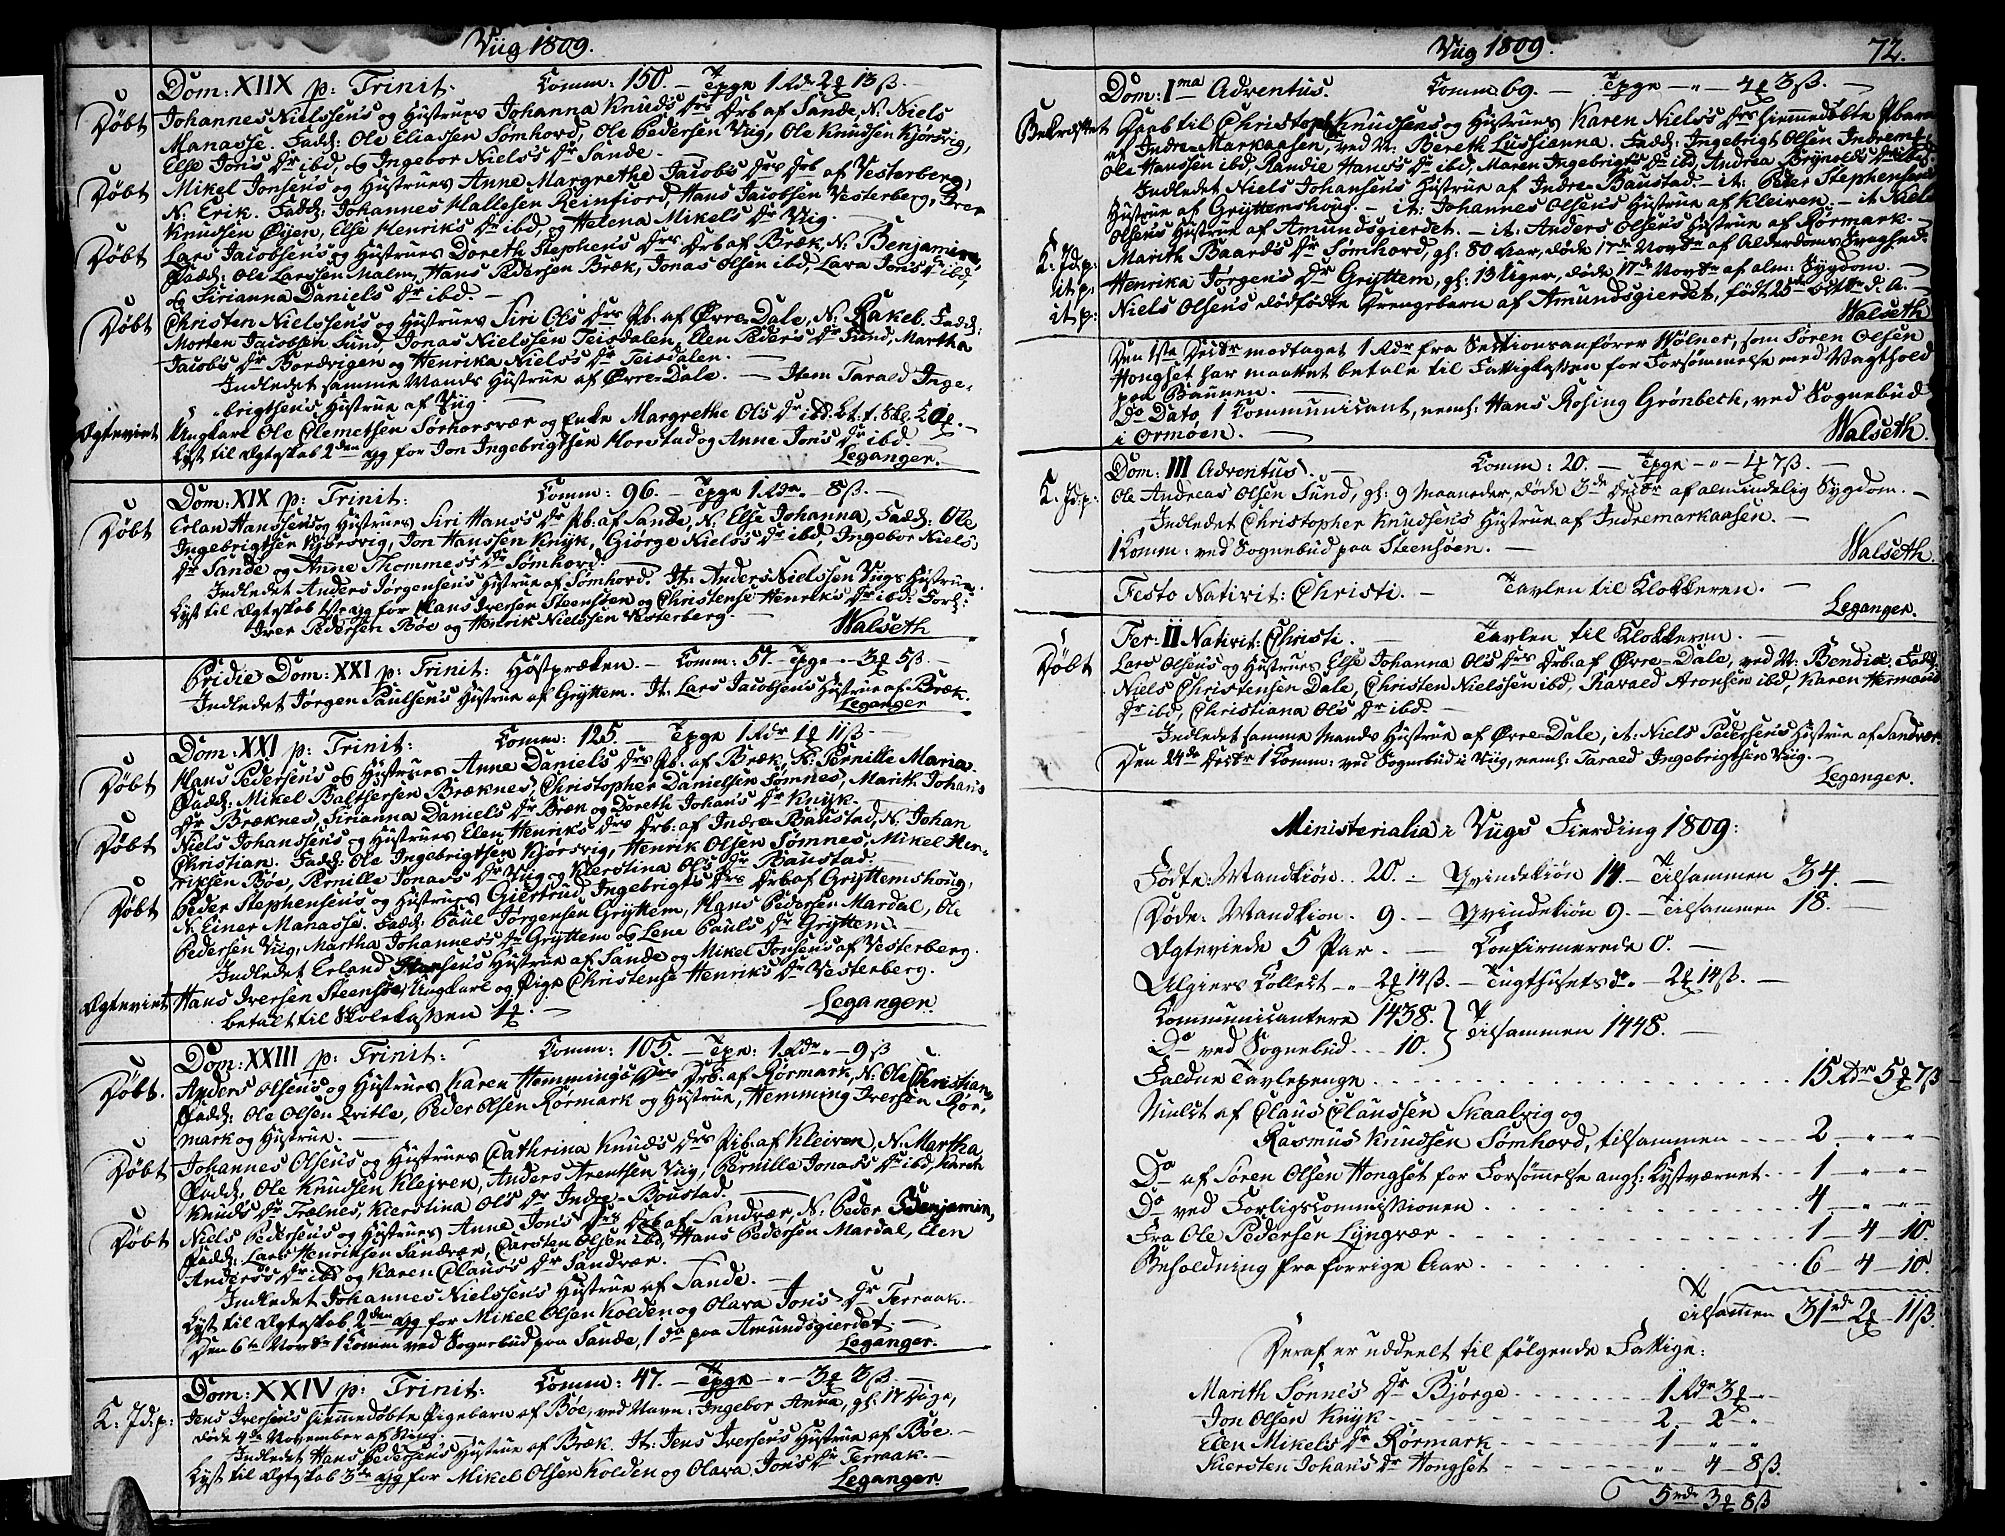 Viig 1809.
Dom: XIIX p: Trinit. Comm: 150. — Tpge 1 Rdr 2 13 ß. —
Døbt Johannes Nielssens og Hustrues Johanna Knuds Drs Drb af Sande, N. Niels
Manasse. Fadd: Ole Eliassen Sømhord, Ole Pedersen Viig, Ole Knudsen Kjørsvig,
Else Jons Dr ibd, og Ingebor Niels's Dr Sande. —
Døbt Mikel Jonsens og Hustrues Anne Margrethe Jacobs Drs Drb af Vesterberg,
N. Erik. Fadd: Johannes Hallesen Reinfiord, Hans Jacobsen Vesterberg, Iver
Knudsen Øyen, Else Henriks Dr ibd, og Helena Mikels Dr Viig.
Døbt Lars Jacobsens og Hustrues Doreth Stephens Drs Drb af Bræk, N. Benjamin
Fadd: Ole Larssen Malm, Hans Pedersen Bræk, Jonas Olsen ibd, Lava Jons Dr ibd,
og Sirianna Daniels Dr ibd. —
Døbt Christen Nielssens og Hustrues Siri Ols Drs Pb. af Øvre-Dale, N. Rakel. Fadd:
Morten Jacobsen Sund, Jonas Nielssen Teisdalen, Elen Peders Dr Sund, Martha
Jacobs Dr Bondvigen og Henrika Niels's Dr Teisdalen.
Indledet samme Mands Hustrue af Øvre-Dale. — Item Tarald Inge-
brigtsens Hustrue af Viig —
Ægteviet Ungkarl Ole Clemetsen Sørhorsvær og Enke Margrethe Ols Dr ibd. bt: t: Skl.
Lyst til Ægteskab 2den gg for Jon Ingebrigtsen Horstad og Anne Jons Dr ibd.
Leganger.
Dom: XIX p: Trinit: Comm: 96. — Tpge 1 Rdr — 8 ß. —
Døbt Erlan Hanssens og Hustrues Siri Hans's Dr Pb. af Sande, N. Else Johanna, Fadd: Ole
Ingebrigtsen Kjørsvig, Jon Hanssen Knyk, Giørge Niels's Dr ibd, Ingebor Niels
Dr Sande og Anne Thommes's Dr Sømhord.
Indledet Anders Jørgensens Hustrue af Sømhord. It: Anders Nielssen Viigs Hustrue.
Lyst til Ægteskab 1ste gg for Hans Iversen Steensøen og Christense Henriks Dr ibd: Forl:
Iver Pedersen Bøe og Henrik Nielssen Vesterberg. —
Walseth
Pridie Dom: XXI p: Trinit: Høstpræken. — Comm: 57. — Tpge — 3 5 ß. —
Indledet Jørgen Paulsens Hustrue af Gryttem. It. Lars Jacobsens Hustrue af Bræk.
Leganger
Dom: XXI p: Trinit: Comm: 125. — Tpge 1 Rdr 1 11 ß. —
Døbt Hans Pedersens og Hustrues Anne Daniels Drs Pb. af Bræk, N. Pernille Maria.
Fadd: Mikel Balthersen Bræknes, Christopher Danielsen Sømnes, Marith Johans
Dr Bræknes, Sirianna Daniels Dr Bræk og Doreth Johans Dr Knyk.
Døbt Niels Johansens og Hustrues Elen Henriks Drs Drb: af Indre Baustad, N. Johan
Christian. Fadd: Ole Ingebrigtsen Kjørsvig, Henrik Olsen Sømnes, Mikel Hen-
riksen Bøe, Pernille Jonas's Dr Viig og Kierstina Ols Dr Baustad.
Døbt Peder Stephensens og Hustrues Giertrud Ingebrigts Drs Drb af Gryttemshoug,
N. Einer Manasse. Fadd: Paul Jørgensen Gryttem, Hans Pedersen Mardal, Ole
Pedersen Viig, Martha Johannes's Dr Gryttem og Lene Pauls Dr Gryttem. —
Indledet Erland Hansens Hustrue af Sande og Mikel Jonsens af Vesterberg.
Ægteviet Hans Iversen Steensøe, Ungkarl og Pige Christense Henriks Dr Vesterberg.
betalt til Skolekassen
Leganger.
Dom: XXIII p: Trinit: Comm: 105. — Tpe: 1 Rdr — 9 ß
Døbt. Anders Olsens og Hustrues Karen Hemmings Drs Drb. af Rørmark, N. Ole Christian
Fadd: Ole Olsen Qvitle, Peder Olsen Rørmark og Hustrue, Hemming Iversen Rør-
mark og Hustrue. —
Døbt Johannes Olsens og Hustrues Cathrina Knuds Drs Pib. af Kleiven, N. Martha
Fadd. Ole Knudsen Klejven, Anders Arentsen Viig, Pernille Jonas's Dr ibd, Karen
Knuds Dr Trælnes, Kierstina Ols Dr Indre-Boustad.
Døbt Niels Pedersens og Hustrues Anne Jons Drs Drb af Sandvær, N: Peder Benjamin,
Fadd: Lars Henriksen Sandvær, Carsten Olsen ibd, Hans Pedersen Mardal, Elen
Anders's Dr ibd og Karen Claus's Dr Sandvær.
Indledet Johannes Nielssens Hustrue af Sande. —
Lyst til Ægteskab 2den gg for Mikel Olsen Kolden og Olava Jons Dr Terraak.
Den 6te Novbr 1 Komm ved Sognebud paa Sande, 1 do paa Amundsgierdet. —
Leganger.
Dom: XXIV p: Trinit: Comm: 47. — Tpge — 3 3 ß. —
K: Jd: p: Jens Iversens hiemmedøbte Pigebarn af Bøe, ved Navn: Ingebor Anna, gl: 17 Dage,
døde 4de November af Sting. —
Indledet Hans Pedersens Hustrue af Bræk. It: Jens Iversens Hustrue af Bøe. —
Lyst til Ægteskab 3die gg for Mikel Olsen Kolden og Olava Jons Dr Terraak. —
Leganger
Viig 1809. 72.
Dom: Ima Adventus. Comm 69. — Tpge — 4 3 ß. —
Bekræftet Daab til Christoph Knudsens og Hustrues Karen Niels's Drs hiemmedøbte Pbarn
af Indre-Markaasen, ved N: Bereth Lussianna. Fadd: Ingebrigt Olsen Indrem:
Ole Hanssen ibd, Randie Hans's Dr ibd, Maren Ingebrigts Dr ibd. Andrea Brynolds Dr ibd.
Indledet Niels Johansens Hustrue af Indre Baustad. — it: Peder Stephensens
Hustrue af Gryttemshoug. — it: Johannes Olsens Hustrue af Kleiven. — it Niels
Olsens Hustrue af Amundsgierdet. — it: Anders Olsens Hustrue af Rørmark. —
K: Jd: p: Marith Baards Dr Sømhord, gl: 80 Aar, døde 17de Novbr af Alderdoms Svaghed.
it. p: Henrika Jørgens Dr Gryttem, gl: 13 Uger, døde 17de Novbr af alm: Sygdom. —
it p: Niels Olsens dødfødte Drengebarn af Amundsgierdet, født 25de Octbr d. A. —
Walseth
Den 1ste Decbr modtaget 1 Rdr fra Sectionsanfører Wølner, som Søren Olsen
Hongset har maattet betale til Fattigkassen for Forsømmelse med Vagthold
paa Baunen. —
Do Dato 1 Communicant, neml: Hans Rosing Grønbech, ved Sognebud
i Ormøen. —
Walseth.
Dom: III Adventus. — Comm: 20. — Tpge — 4 7 ß. —
K. Jd. p: Ole Andreas Olsen Sund, gl: 9 Maaneder, døde 3de Decbr af almindelig Sygdom. —
Indledet Christopher Knudsens Hustrue af Indremarkaasen. —
1 Komm: ved Sognebud paa Steensøen. —
Walseth.
Festo Nativit: Christi. — Tavlen til Klokkeren. —
Leganger.
Fer: II Nativit: Christi. — Tavlen til Klokkeren. —
Døbt Lars Olsens og Hustrues Else Johanna Ols Drs Drb: af Øvre-Dale, ved N: Bendix, Fadd.
Niels Christensen Dale, Christen Nielssen ibd, Harald Aronsen ibd, Karen Hermans
Dr ibd, Christiana Ols Dr ibd. —
Indledet samme Mands Hustrue af Øvre-Dale, it: Niels Pedersens Hustrue af Sandvær.
Den 24de Decbr 1 Komm: ved Sognebud i Viig, neml: Tarald Ingebrigtsen Viig. —
Leganger.
Ministerialia i Viigs Fierding 1809:
Fødte: Mandkiøn.. 20. — Qvindekiøn 14. — Tilsammen 34. —
Døde: Mandkiøn. 9. — Qvindekiøn 9. — Tilsammen 18. —
Ægteviede 5 Par. — Confirmerede 0. —
Algiers Collect — 2 14 ß. — Tugthusets do — 2 14 ß. —
Kommunicantere 1438. } Tilsammen 1448. —
Do ved Sognebud... 10. }
Faldne Tavlepenge . . . . 15 Rdr 5 7 ß
Mulct af Claus Claussen Skaalvig og
Rasmus Knudsen Sømhord, tilsammen — 2 — " — "
Do af Søren Olsen Hongset for Forsømmelse angl: Kystværnet. . . 1 — " — "
Do ved Forligscommissionen . . . . 4 — " — "
Fra Ole Pedersen Lyngvær . . . . 1 — 4 — 10.
Beholdning fra forrige Aar . . . . 6 — 4 — 10.
Tilsammen 31 rdr 2 — 11 ß.
Deraf er uddeelt til følgende Fattige:
Marith Sønnes Dr Bjørge . . . . 1 Rdr 3 — "
Jon Olsen Knyk . . . . 2 — 2 — "
Elen Mikels Dr Rørmark . . . . 1 — " — "
Kiersten Johans Dr Hongset . . . . " 4 — 8 ß.
5 rdr 3 8 ß